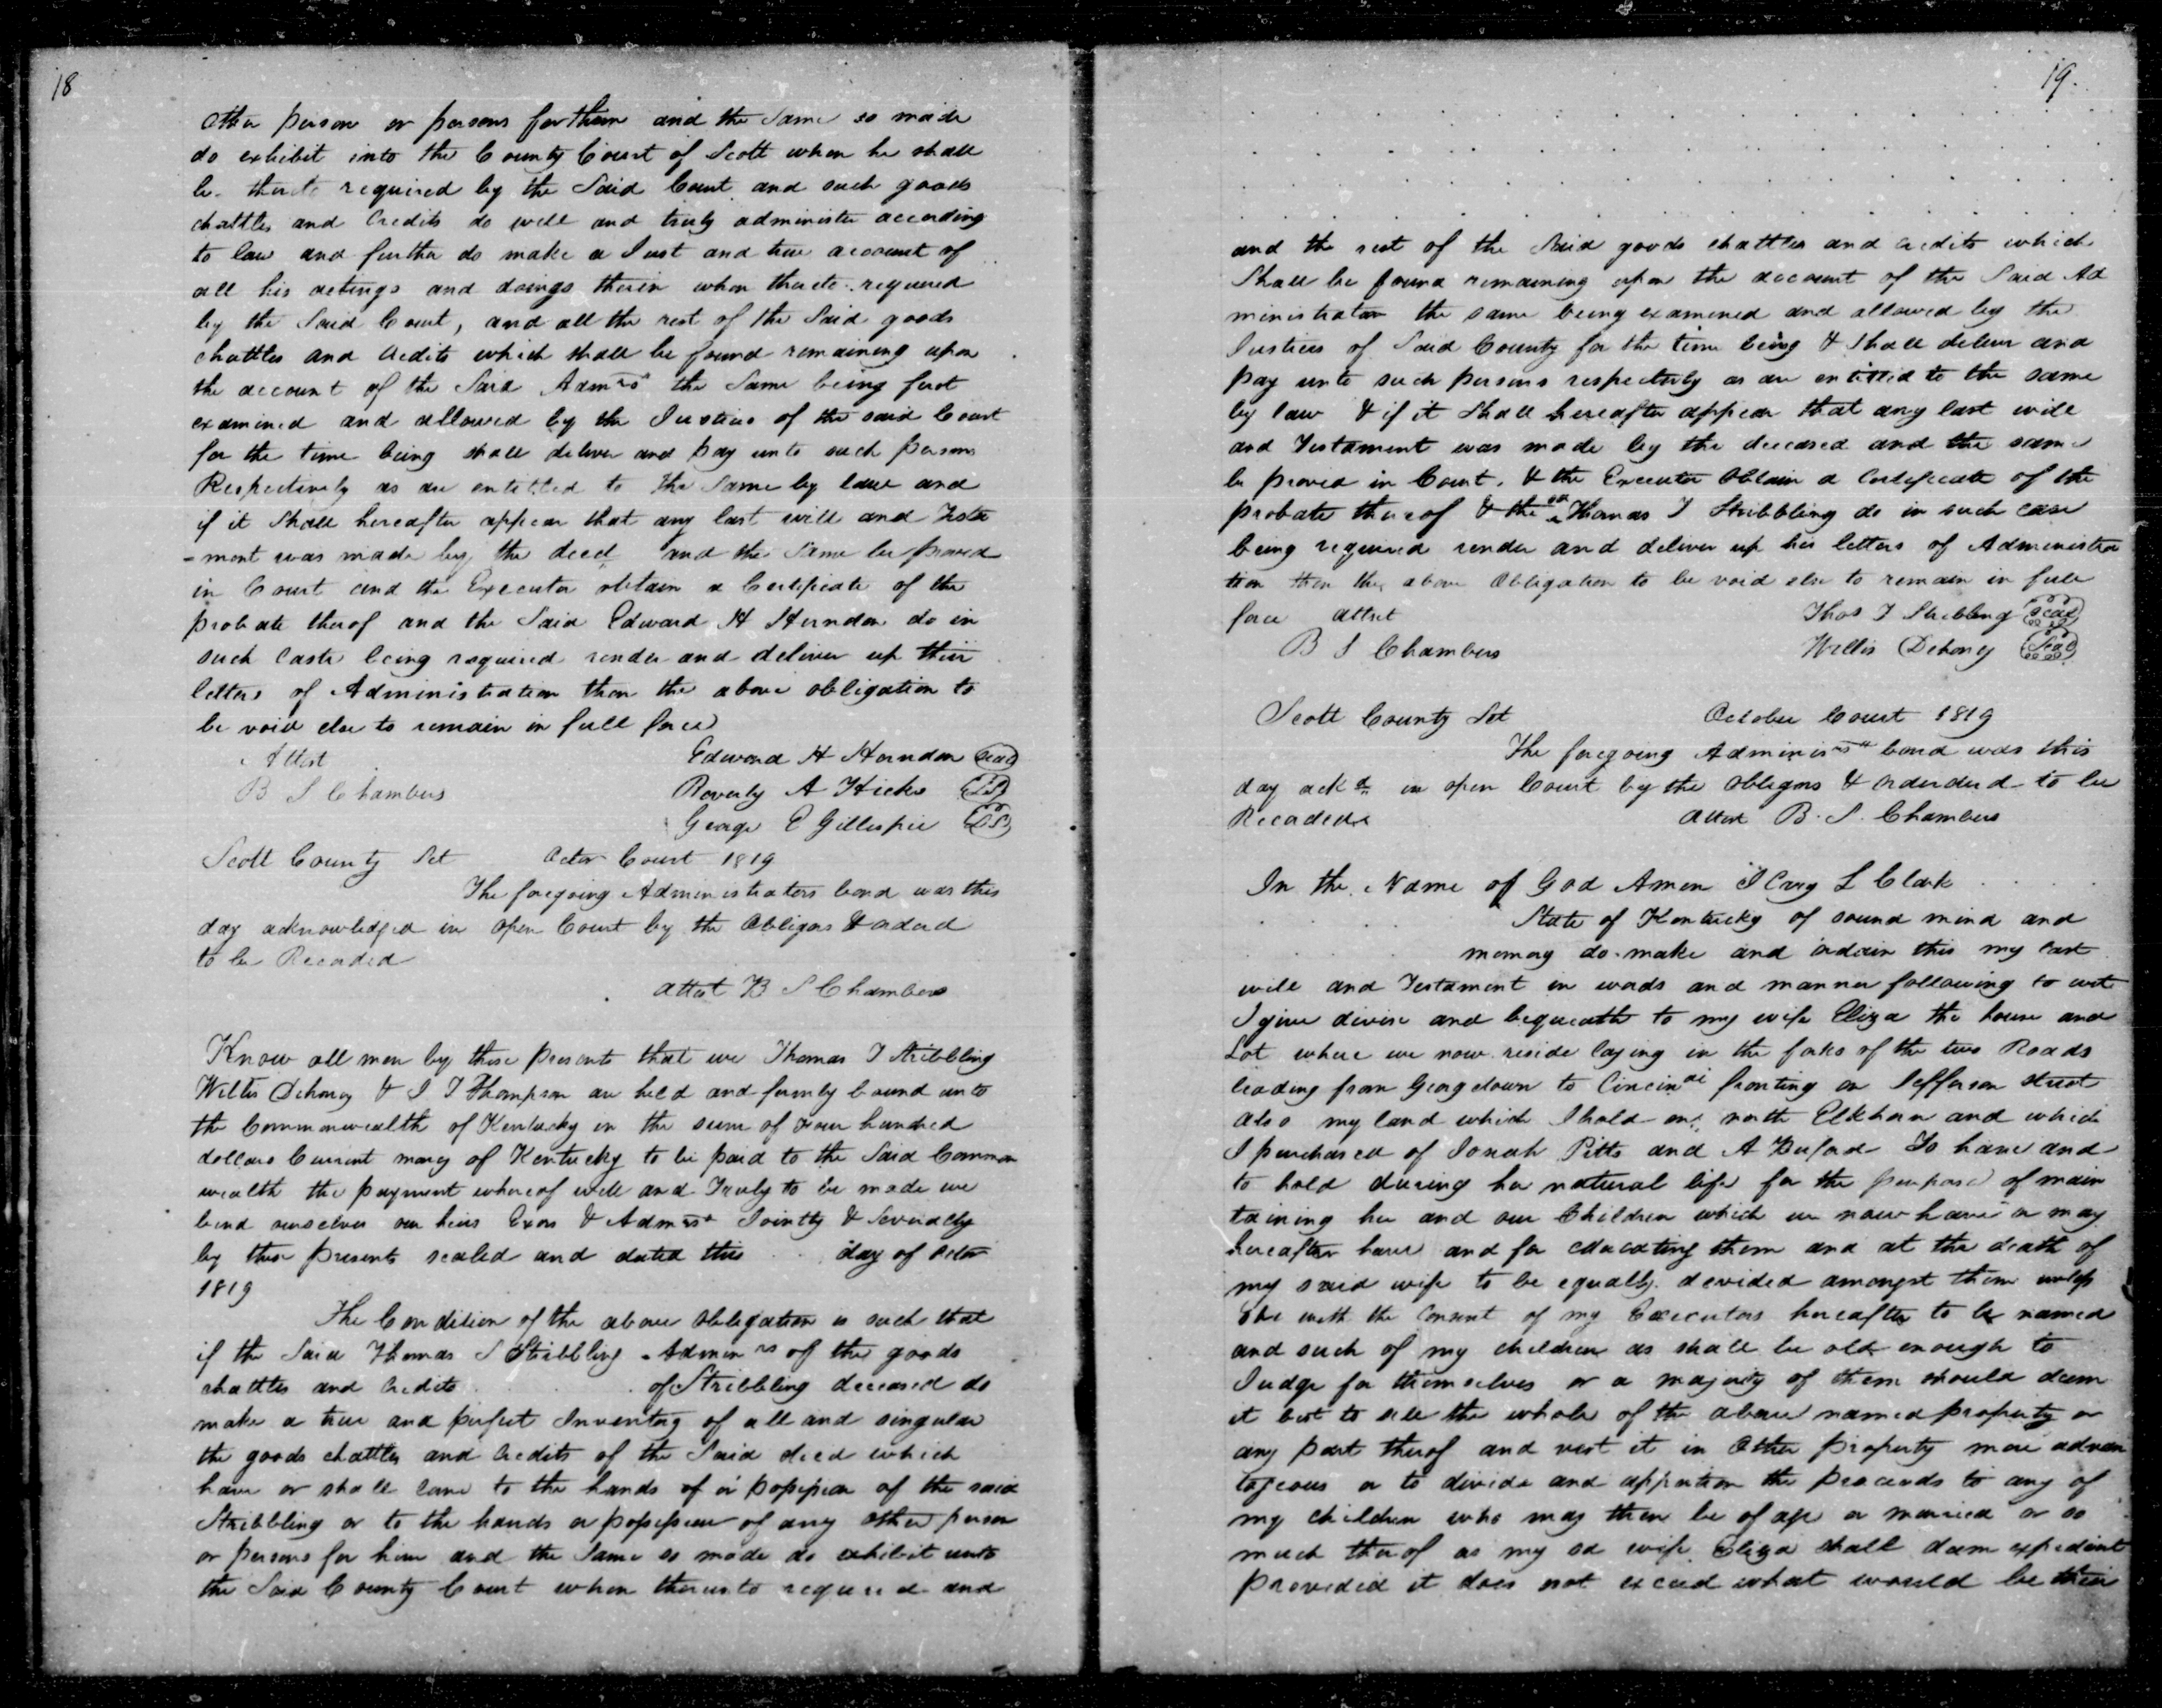 18
other person or persons for them and the same so made
do exhibit into the County Court of Scott when he shall
be thereto required by the Said Court and such goods
chattles and Credits do well and truly administer according
to law and further do make a Just and true account of
all his actings and doings therein when thereto required
by the Said Court, and all the rest of the Said goods
chattles and Credits which shall be found remaining upon
the account of the Said Admrs the Same being first
examined and allowed by the Justices of the said Court
for the time being shall deliver and pay unto such persons
Respectively as are entitled to the Same by law and
if it Shall hereafter appear that any last will and Testa
-ment was made by the decd and the Same be proved
in Court and the Executor obtain a Certificate of the
probate therof and the Said Edward H Herndon do in
such Caste being required render and deliver up their
letters of Administration then the above obligation to
be void else to remain in full force
Attest Edward H Herndon Seal
B S Chambers Beverly A Hicks LS
George E Gillespie LS
Scott County Sct Octor Court 1819
The foregoing Administrators bond was this
day acknowledged in open Court by the Obligors & ordered
to be Recorded
attest B S Chambers
Know all men by these presents that we Thomas T Stribbling
Willis Dehoney & J T Thompson are held and firmly bound unto
the Commonwealth of Kentucky in the sum of four hundred
dollars Current money of Kentucky to be paid to the Said Common
wealth the payment whereof well and Truly to be made we
bind ourselves our heirs Exors & Admrs Jointly & Severally
by these presents sealed and dated this day of Octor
1819
The Condition of the above obligation is such that
if the Said Thomas S Stribbling Adminrs of the goods
chattles and Credits of Stribbling deceased do
make a true and perfect Inventory of all and singular
the goods chattles and Credits of the Said decd which
have or shall come to the hands of or possession of the said
Stribbling or to the hands or possession of any other person
or persons for him and the Same so made do exhibit unto
the Said County Court when thereunto required and
19.
and the rest of the Said goods chattles and Credits which
Shall be found remaining upon the account of the Said Ad
ministrator the same being examined and allowed by the
Justices of Said County for the time being & shall deliver and
pay unto such persons respectively as are entitled to the same
by law & if it Shall hereafter appear that any last will
and Testament was made by the deceased and the same
be proved in Court, & the Executor Obtain a Certificate of the
probate thereof & the sd Thomas T Stribbling do in such case
being required render and deliver up his letters of Administra
tion then the above Obligation to be void else to remain in full
force attest Thos T Stribbling Seal
B S Chambers Willis Dehoney Seal
Scott County Sct October Court 1819
The foregoing Administrs bond was this
day ackd in open Court by the obligors & orderded to be
Recorded attest B. S. Chambers
In the Name of God Amen I Cary L Clark
State of Kentucky of sound mind and
memory do make and ordain this my last
will and Testament in words and manner following to wit
I give devise and bequeath to my wife Eliza the house and
Lot where we now reside laying in the forks of the two Roads
leading from Georgetown to Cincinati fronting on Jefferson street
also my land which I hold on north Elkhorn and which
I purchased of Josiah Pitts and A Buford To have and
to hold during her natural life for the purpose of main
taining her and our Children which we now have or may
hereafter have and for educating them and at the death of
my said wife to be equally devided amongst them unless
She with the Consent of my Executors hereafter to be named
and such of my children as shall be old enough to
Judge for themselves or a majority of them should deem
it best to sell the whole of the above named property or
any part therof and vest it in other property more advan
tageous or to divide and apportion the proceeds to any of
my children who may then be of age or married or so
much therof as my sd wife Eliza shall deem expedient
provided it does not exceed what would be their